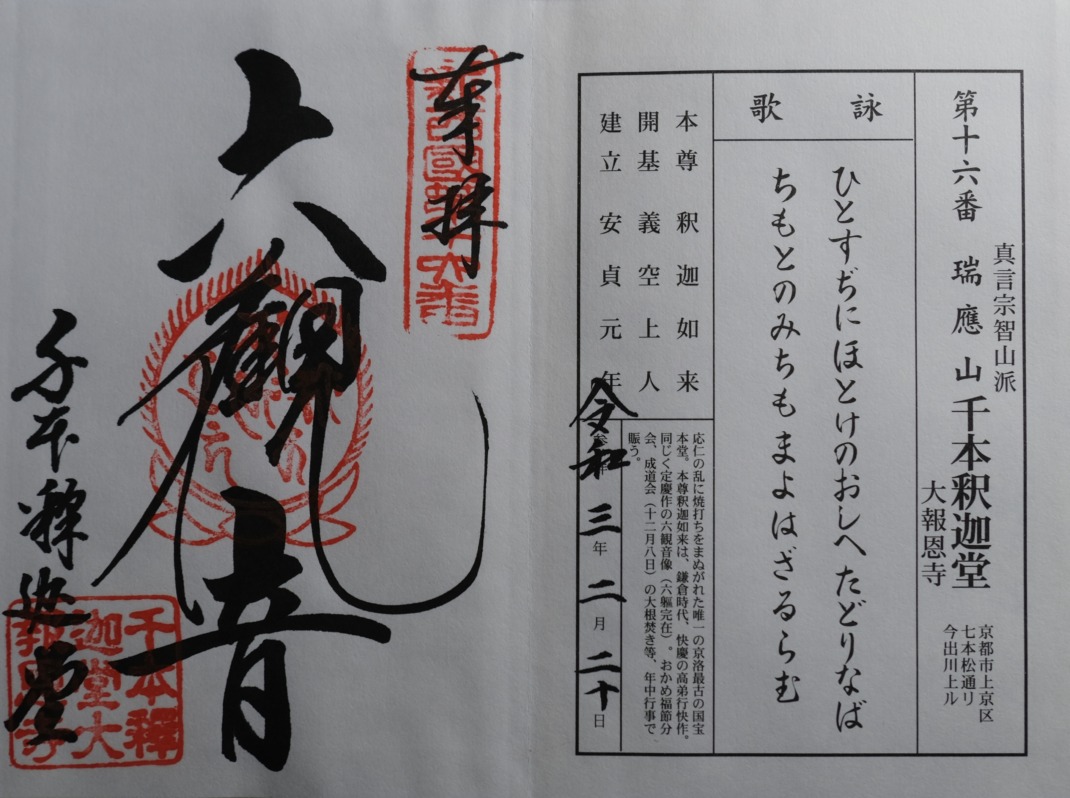 第十六番 瑞應山 千本釈迦堂
真言宗智山派
大報恩寺
京都市上京区
七本松通リ
今出川上ル
詠歌
ひとすぢにほとけのおしへたどりなば
ちもとのみちもまよはざるらむ
本尊 釈迦如来
開基 義空上人
建立 安貞元年
応仁の乱に焼打ちをまぬがれた唯一の京洛最古の国宝
本堂。本尊釈迦如来は、鎌倉時代、快慶の高弟行快作。
同じく定慶作の六観音像（六軀完在）。おかめ福節分
会、成道会（十二月八日）の大根焚き等、年中行事で
賑う。
令和三年二月二十日
奉拝
六観音
千本釋迦堂
千本釋
迦堂大
報恩寺